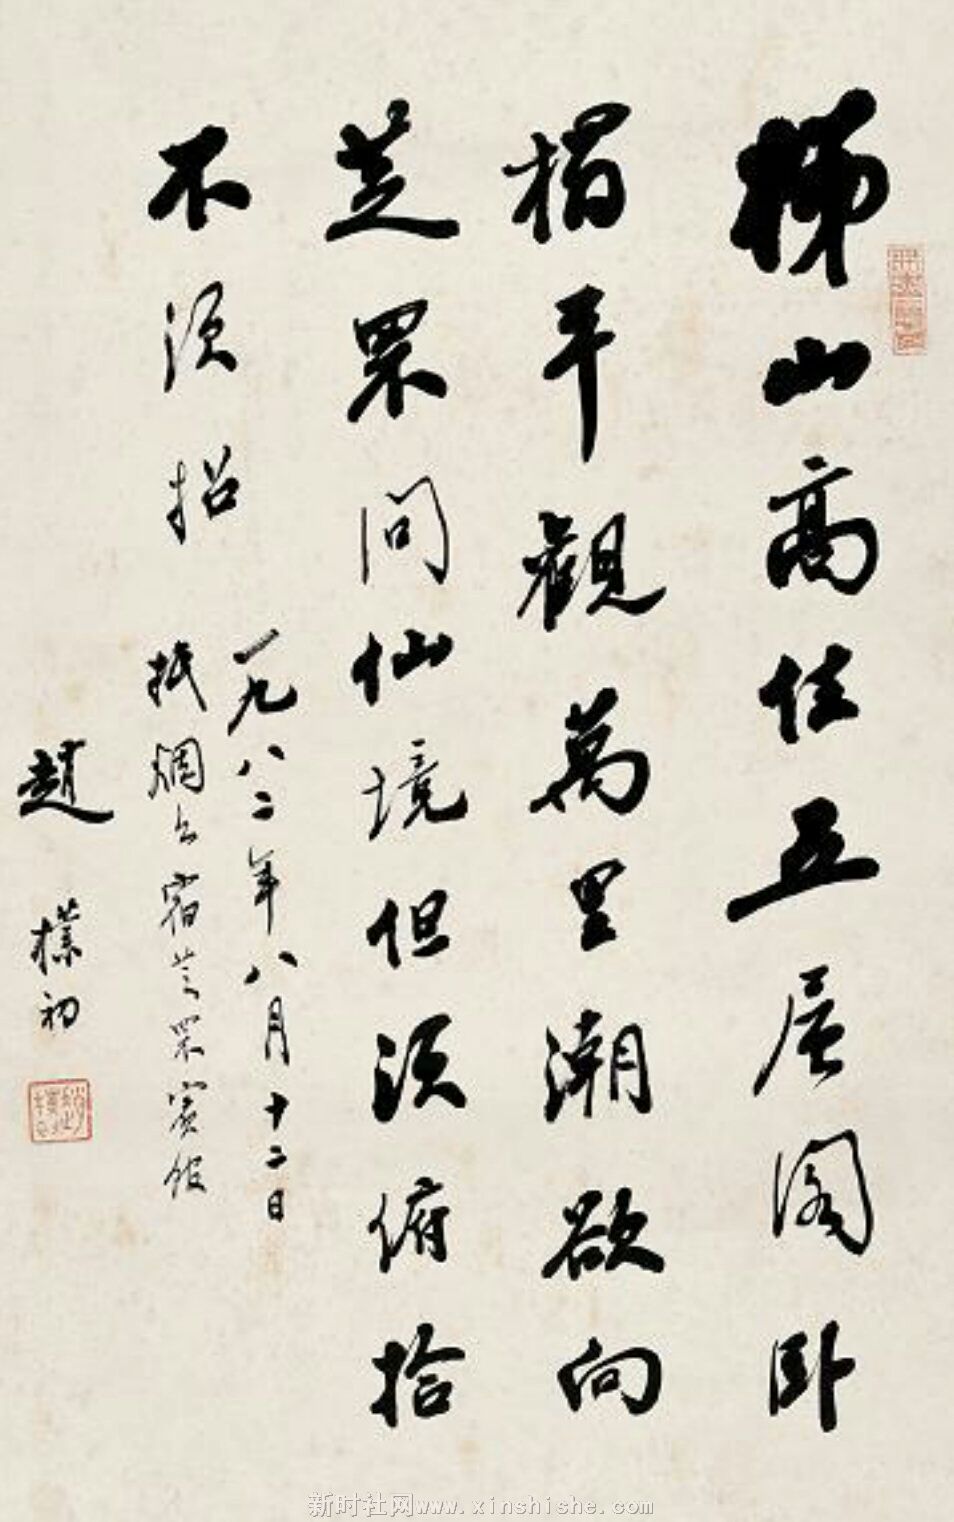 梯山高住五层阁卧
榻平觀萬里潮欲向
芝罘问仙境但须俯拾
不须招
一九八二年八月十二日
抵烟台宿芝罘宾馆
趙樸初
新时社网www.xinshishe.com